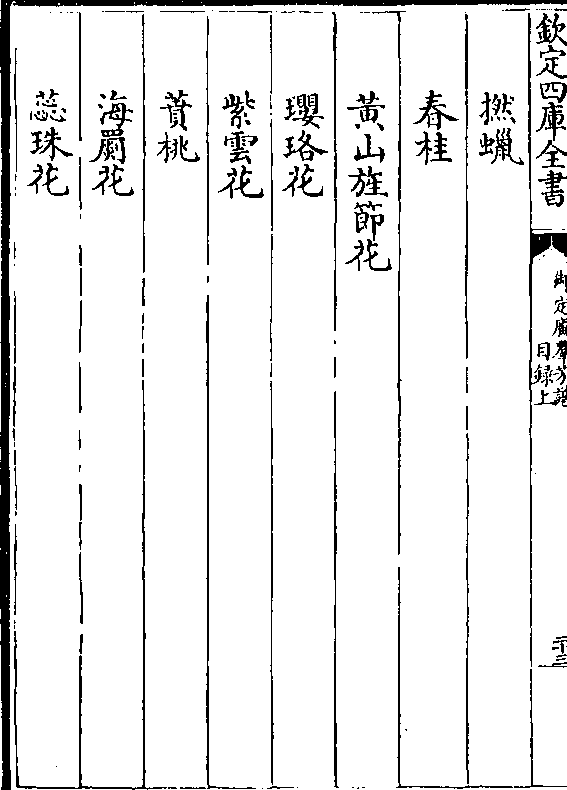 欽定四庫全書
御定廣羣芳譜
目録上
二十三
撚蠟
春桂
黃山旌節花
瓔珞花
紫雲花
蕡桃
海罽花
蕊珠花